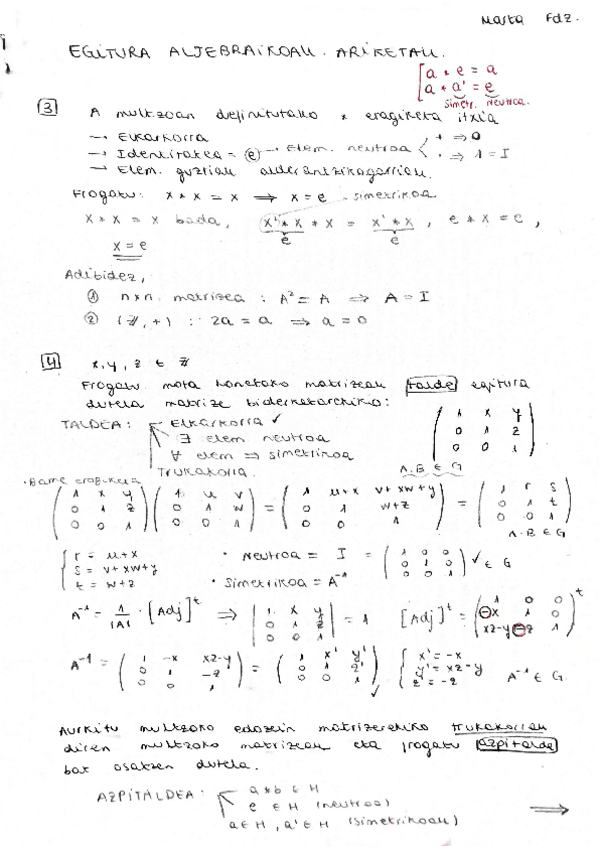 Marta Fdz.
EGITURA ALJEBRAIKOAK. ARIKETAK.
[a * e = a
[a * a' = e
simetr. neutroa.
3 A multzoan definitutako * eragiketa itxia
→ Elkarkorra
→ Identitatea = e → Elem. neutroa < + ⇒ 0
· ⇒ 1 = I
→ Elem. guztiak alderantzikagarriak.
Frogatu: x * x = x ⟹ x = e simetrikoa
x * x = x bada, x' * x * x = x' * x , e * x = e ,
e e
x = e
Adibidez,
① n×n. matrizea : A² = A ⟹ A = I
② (ℤ, +) : 2a = a ⟹ a = 0
4 x, y, z ∈ ℤ
Frogatu mota honetako matrizeak talde egitura
dutela matrize biderketarekiko:
TALDEA : Elkarkorra ✓
∃ elem neutroa
∀ elem ⇒ simetrikoa
Trukakorra
( 1 x y
0 1 z
0 0 1 )
· Barne eragiketa
A·B ∈ G
( 1 x y ) ( 1 u v ) = ( 1 u+x v+xw+y ) = ( 1 r s )
( 0 1 z ) ( 0 1 w ) ( 0 1 w+z ) ( 0 1 t )
( 0 0 1 ) ( 0 0 1 ) ( 0 0 1 ) ( 0 0 1 )
A·B ∈ G
{ r = u+x
s = v+xw+y
t = w+z
· Neutroa = I = ( 1 0 0
0 1 0
0 0 1 ) ✓ ∈ G
· Simetrikoa = A⁻¹
A⁻¹ = 1/|A| · [Adj]ᵗ ⟹ | 1 x y
0 1 z
0 0 1 | = 1 [Adj]ᵗ = ( 1 0 0
-x 1 0
xz-y -z 1 )ᵗ
A⁻¹ = ( 1 -x xz-y
0 1 -z
0 0 1 ) = ( 1 x' y'
0 1 z'
0 0 1 ) ✓ { x' = -x
y' = xz-y
z' = -z A⁻¹ ∈ G
Aurkitu multzoko edozein matrizerekiko trukakorrak
diren multzoko matrizeak eta frogatu azpitalde
bat osatzen dutela.
AZPITALDEA : a * b ∈ H
e ∈ H (neutroa)
a ∈ H , a' ∈ H (simetrikoak)
⟹